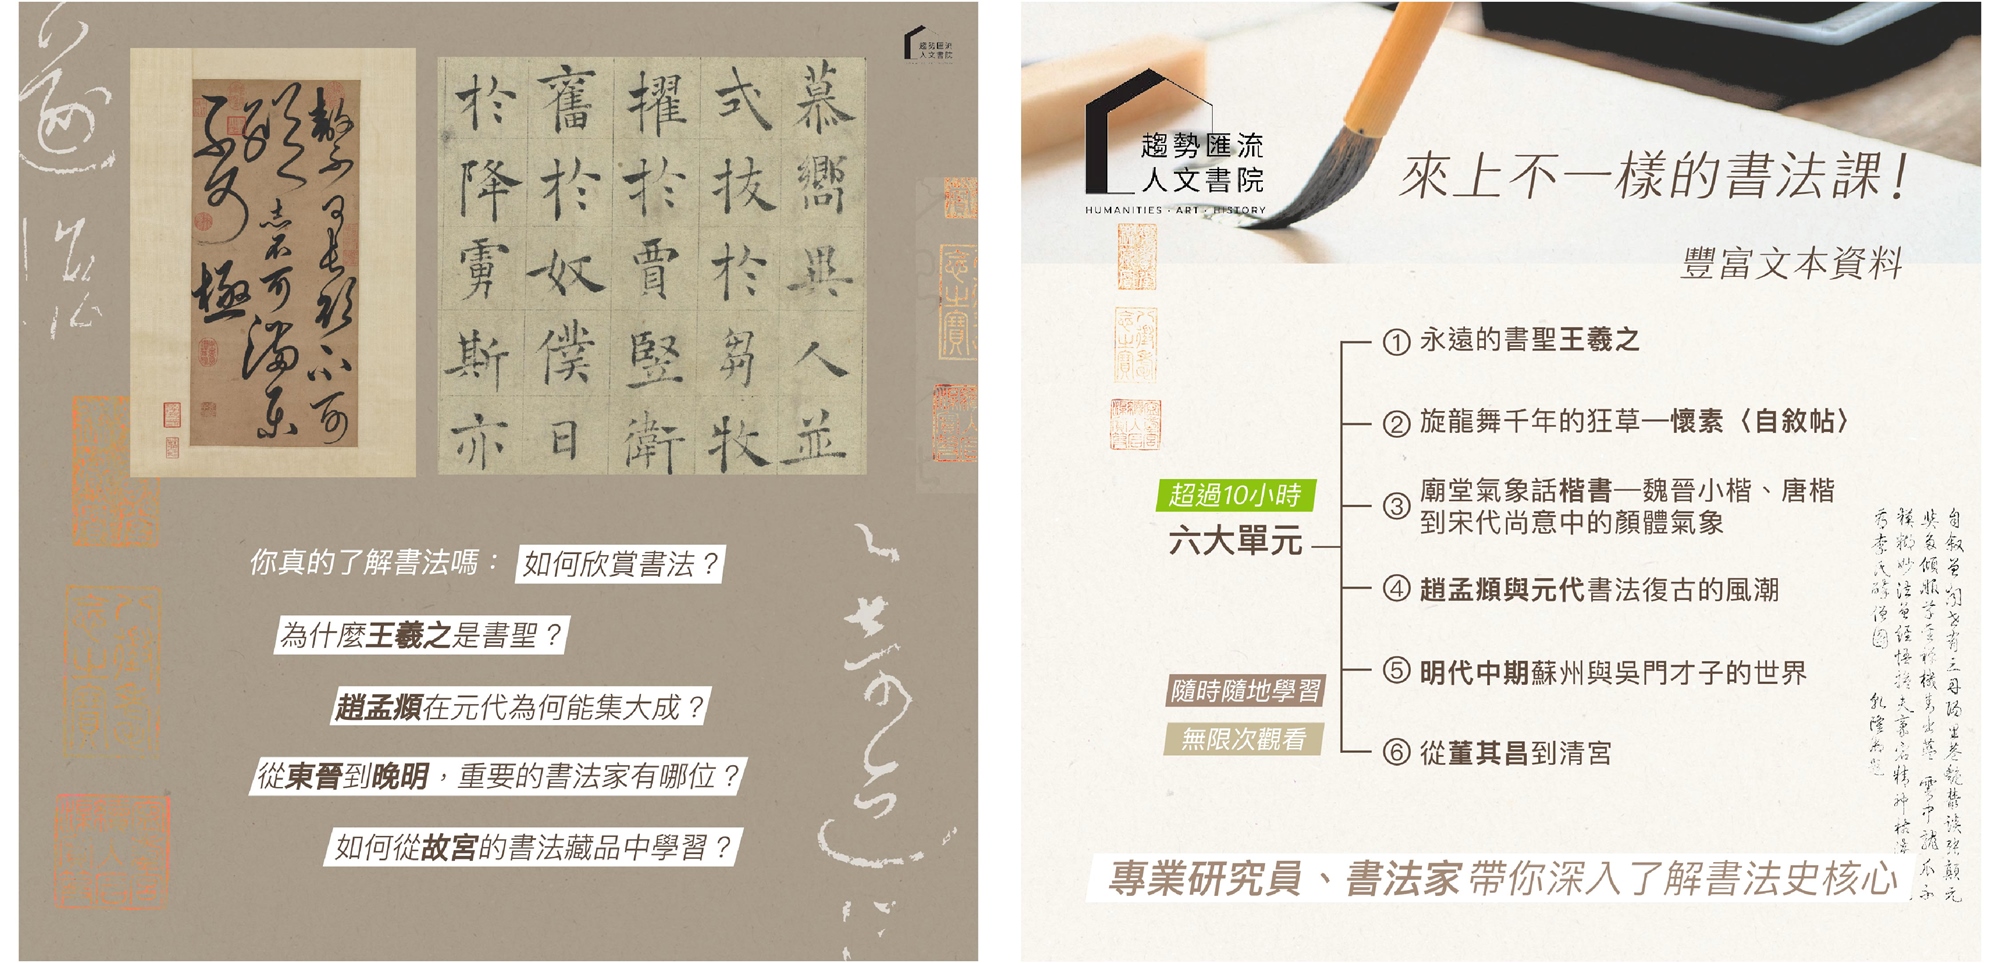 趨勢匯流
人文書院
敖不可長欲不可
從志不可滿樂
不可極
慕嚮異人並
式拔於芻牧
擢於賈豎衛
舊於奴僕日
於降虜斯亦
你真的了解書法嗎：如何欣賞書法？
為什麼王羲之是書聖？
趙孟頫在元代為何能集大成？
從東晉到晚明，重要的書法家有哪位？
如何從故宮的書法藏品中學習？
趨勢匯流
人文書院
HUMANITIES · ART · HISTORY
來上不一樣的書法課！
豐富文本資料
超過10小時
六大單元
隨時隨地學習
無限次觀看
① 永遠的書聖王羲之
② 旋龍舞千年的狂草—懷素〈自敘帖〉
③ 廟堂氣象話楷書—魏晉小楷、唐楷
到宋代尚意中的顏體氣象
④ 趙孟頫與元代書法復古的風潮
⑤ 明代中期蘇州與吳門才子的世界
⑥ 從董其昌到清宮
專業研究員、書法家帶你深入了解書法史核心